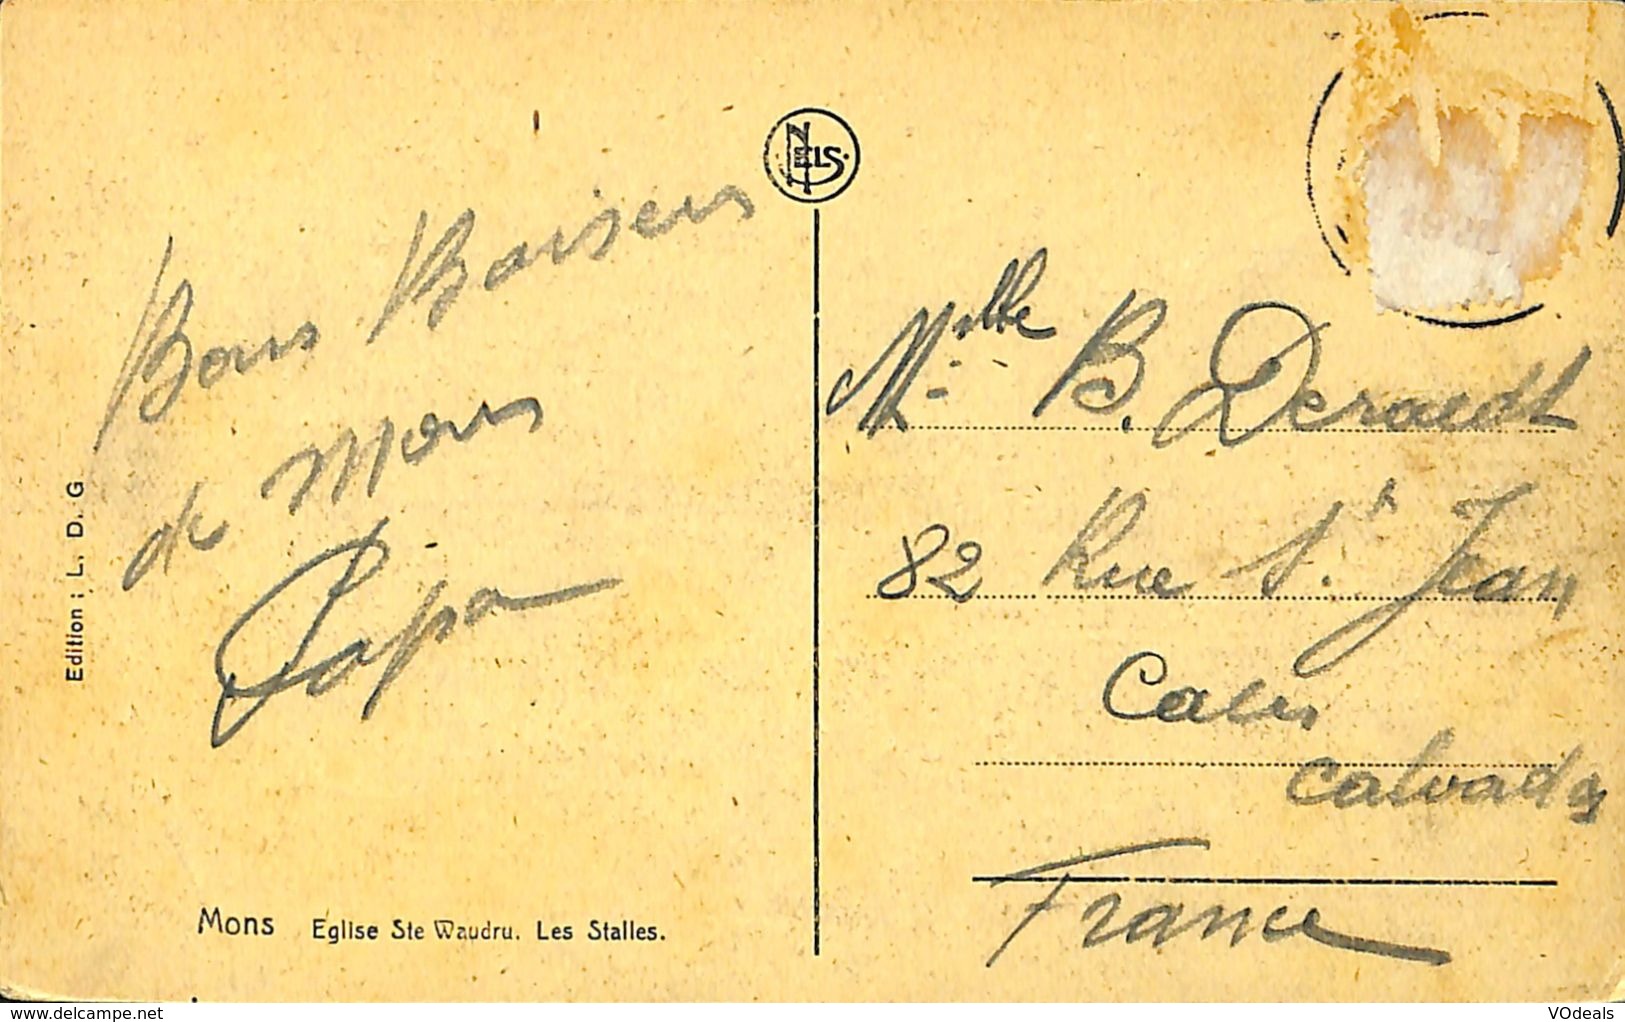 NELS.
Bons Baisers
de Mons
Papa
Edition ; L. D. G
Mons Eglise Ste Waudru. Les Stalles.
Melle B. Deraedt
82 Rue St. Jean
Caen
Calvados
France
www.delcampe.net
VOdeals